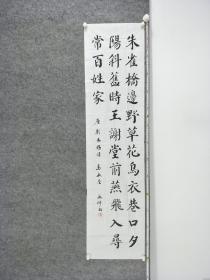 朱雀橋邊野草花烏衣巷口夕
陽斜舊時王謝堂前燕飛入尋
常百姓家
唐劉禹錫詩烏衣巷